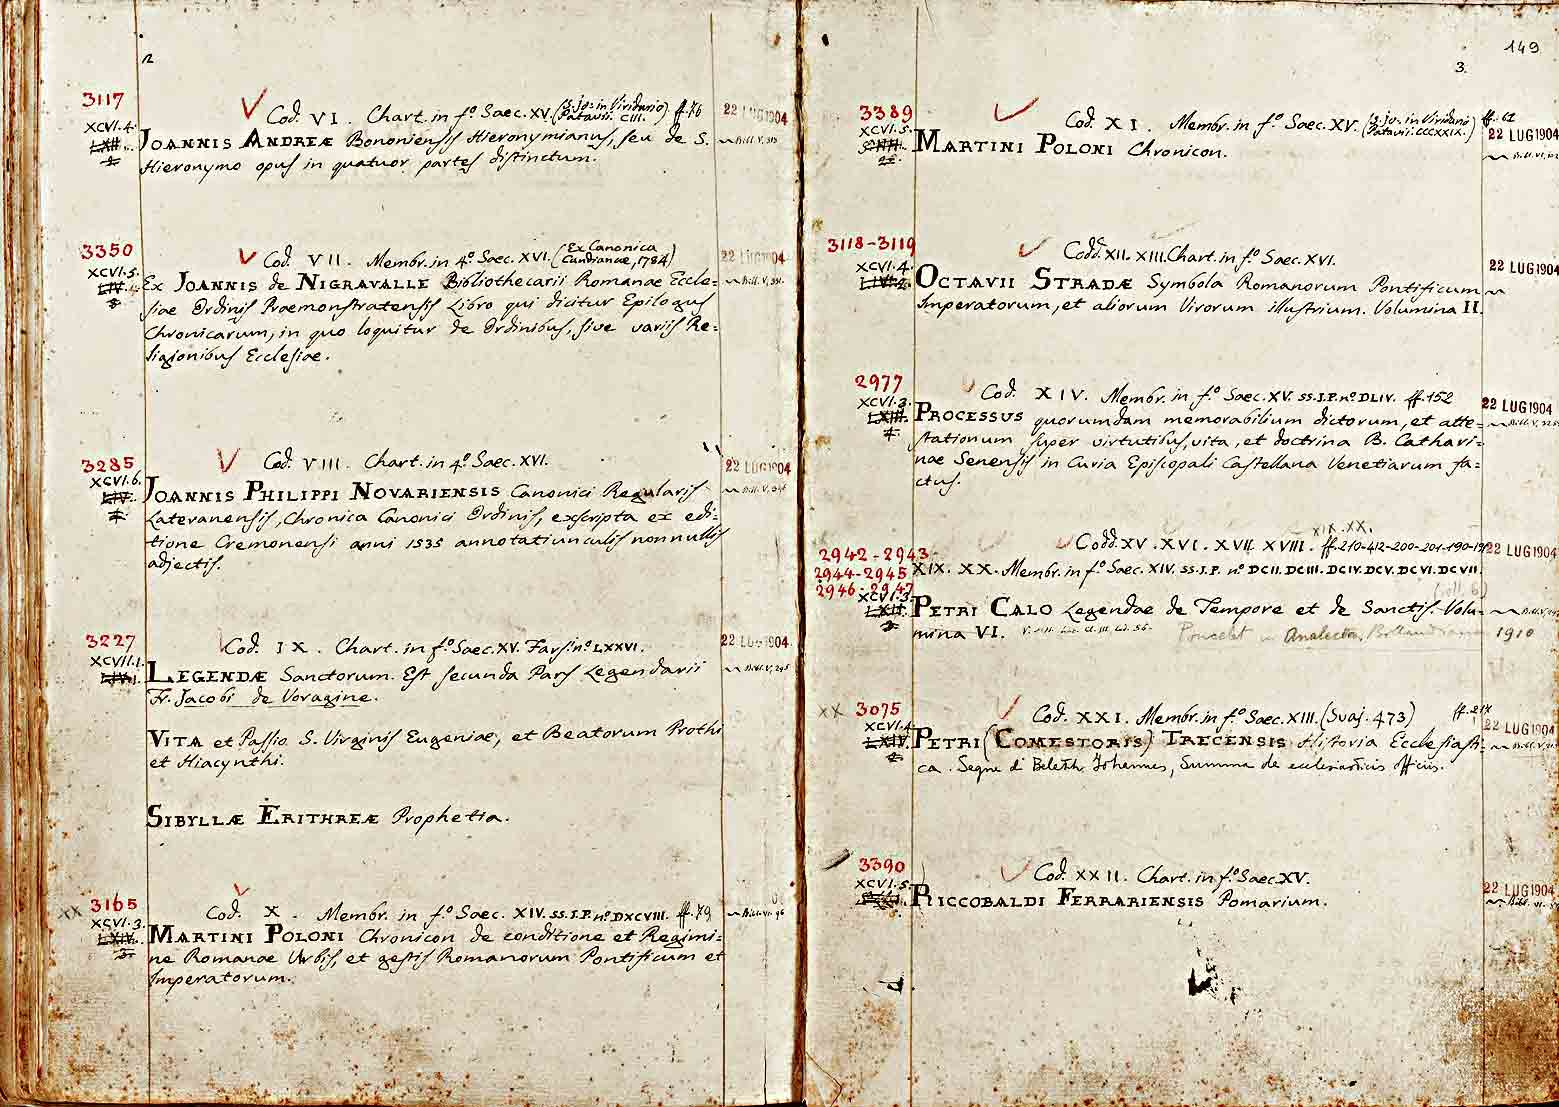 2
3117
Cod. VI. Chart. in fº Saec. XV. (S. Jo: in Viridario Patavii. CIII.) ff. 76
22 LUG 1904
XCVI.4.
JOANNIS ANDREÆ Bononiensis Hieronymianus, seu de S.
Hieronymo opus in quatuor partes distinctum.
3350
Cod. VII. Membr. in 4º Saec. XVI. (Ex Canonica Candianae, 1784)
22 LUG 1904
XCVI.5.
Ex JOANNIS de NIGRAVALLE Bibliothecarii Romanae Eccle=
siae Ordinis Praemonstratensis Libro qui dicitur Epilogus
Chronicarum, in quo loquitur de Ordinibus, sive variis Re=
ligionibus Ecclesiae.
3285
Cod. VIII. Chart. in 4º Saec. XVI.
22 LUG 1904
XCVI.6.
JOANNIS PHILIPPI NOVARIENSIS Canonici Regularis
Lateranensis, Chronica Canonici Ordinis, exscripta ex edi=
tione Cremonensi anni 1535 annotatiunculis nonnullis
adjectis.
3227
Cod. IX. Chart. in fº Saec. XV. Fars. nº LXXVI.
22 LUG 1904
XCVII.1.
LEGENDÆ Sanctorum. Est secunda Pars Legendarii
Fr. Jacobi de Voragine.
VITA et Passio S. Virginis Eugeniae, et Beatorum Prothi
et Hiacynthi.
SIBYLLÆ ERITHREÆ Prophetia.
XX 3165
Cod. X. Membr. in fº Saec. XIV. SS.J.P. nº DXCVIII. ff. 79
XCVI.3.
MARTINI POLONI Chronicon de conditione et Regimi=
ne Romanae Urbis, et gestis Romanorum Pontificum et
Imperatorum.
149
3.
3389
Cod. XI. Membr. in fº Saec. XV. (S. Jo. in Viridario Patavii. CCCXXIX.) ff. 62
22 LUG 1904
XCVI.5.
MARTINI POLONI Chronicon.
3118-3119
Codd. XII. XIII. Chart. in fº Saec. XVI.
22 LUG 1904
XCVI.4.
OCTAVII STRADÆ Symbola Romanorum Pontificum
Imperatorum, et aliorum Virorum illustrium. Volumina II.
2977
Cod. XIV. Membr. in fº Saec. XV. SS.J.P. nº DLIV. ff. 152
22 LUG 1904
XCVI.3.
PROCESSUS quorumdam memorabilium dictorum, et atte=
stationum super virtutibus, vita, et doctrina B. Cathari=
nae Senensis in Curia Episcopali Castellana Venetiarum fa=
ctus.
XIX. XX.
2942-2943
Codd. XV. XVI. XVII. XVIII. ff. 210-412-200-201-190-
22 LUG 1904
2944-2945
XIX. XX. Membr. in fº Saec. XIV. SS.J.P. nº DCII. DCIII. DCIV. DCV. DCVI. DCVII.
2946-2947
XCVI.3.
PETRI CALO Legendae de Tempore et de Sanctis. Volu=
mina VI. Poncelet in Analecta Bollandiana 1910
XX 3075
Cod. XXI. Membr. in fº Saec. XIII. (Suaj. 473)
22 LUG 1904
XCVI.4.
PETRI (COMESTORIS) TRECENSIS Historia Ecclesiasti=
ca. Segue di Beleth. Johannes, Summa de ecclesiasticis officiis.
3390
Cod. XXII. Chart. in fº Saec. XV.
22 LUG 1904
XCVI.5.
RICCOBALDI FERRARIENSIS Pomarium.